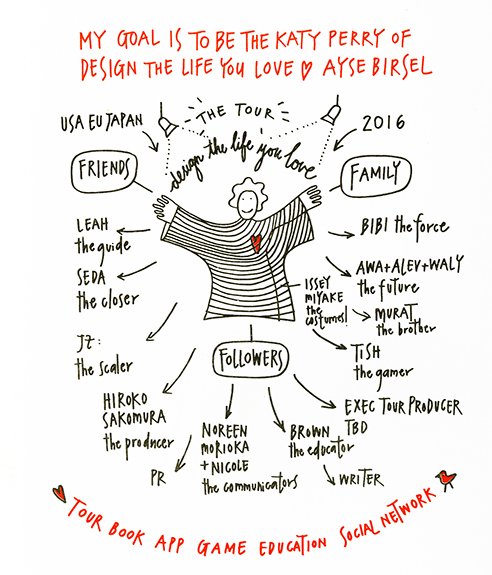 MY GOAL IS TO BE THE KATY PERRY OF
DESIGN THE LIFE YOU LOVE AYSE BIRSEL
USA EU JAPAN
THE TOUR
2016
design the life you love
FRIENDS
FAMILY
LEAH
the guide
SEDA
the closer
JZ:
the scaler
HIROKO
SAKOMURA
the producer
BIBI the force
AWA+ALEV+WALY
the future
ISSEY
MIYAKE
the
costumes!
MURAT
the brother
TISH
the gamer
FOLLOWERS
EXEC TOUR PRODUCER
TBD
PR
NOREEN
MORIOKA
+ NICOLE
the communicators
BROWN
the educator
WRITER
TOUR BOOK APP GAME EDUCATION SOCIAL NETWORK